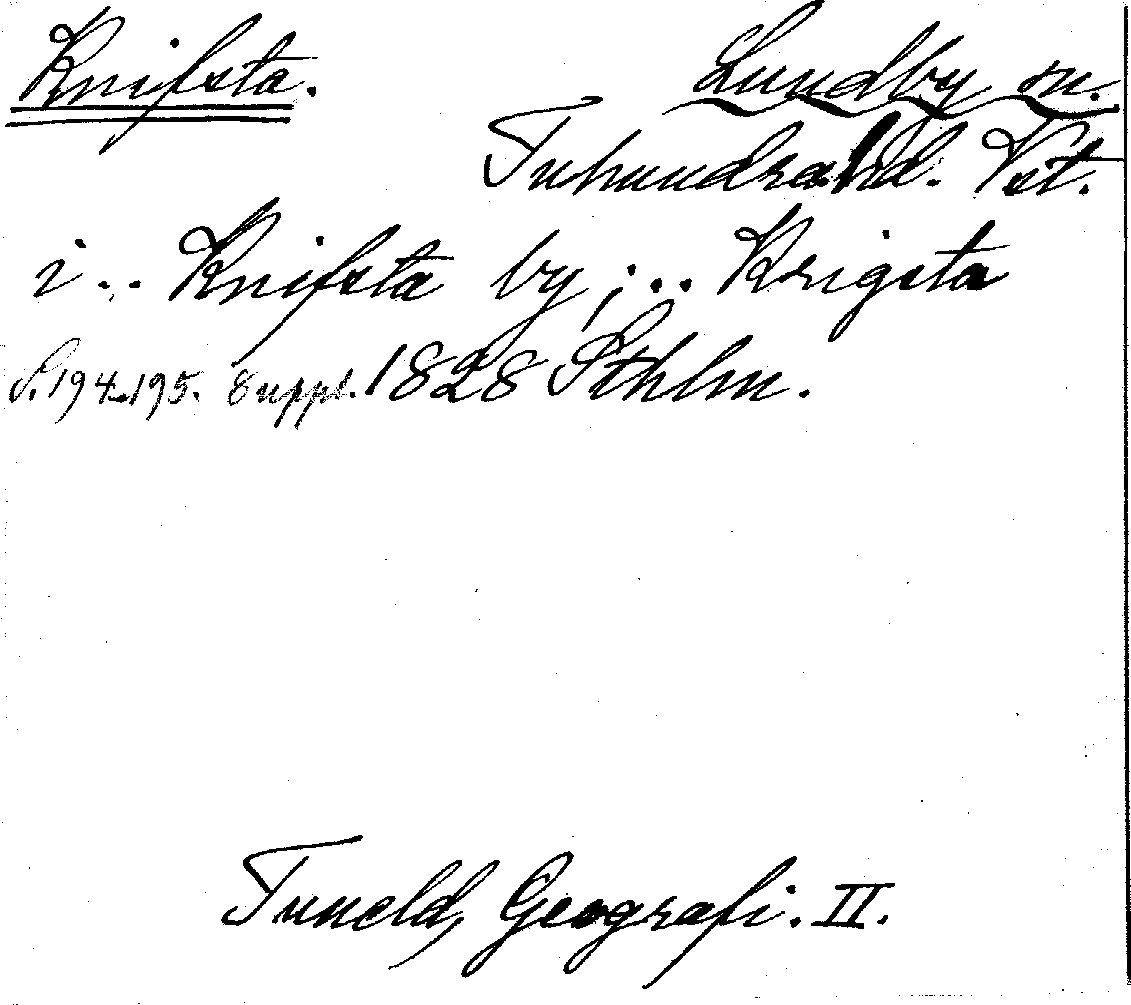 Knifsta. Lundby sn.
Tuhundra hd. Vst.
i... Knifsta by; ... Krigsta
S. 194-195. Suppl. 1828 Sthlm.
Tuneld, Geografi. II.